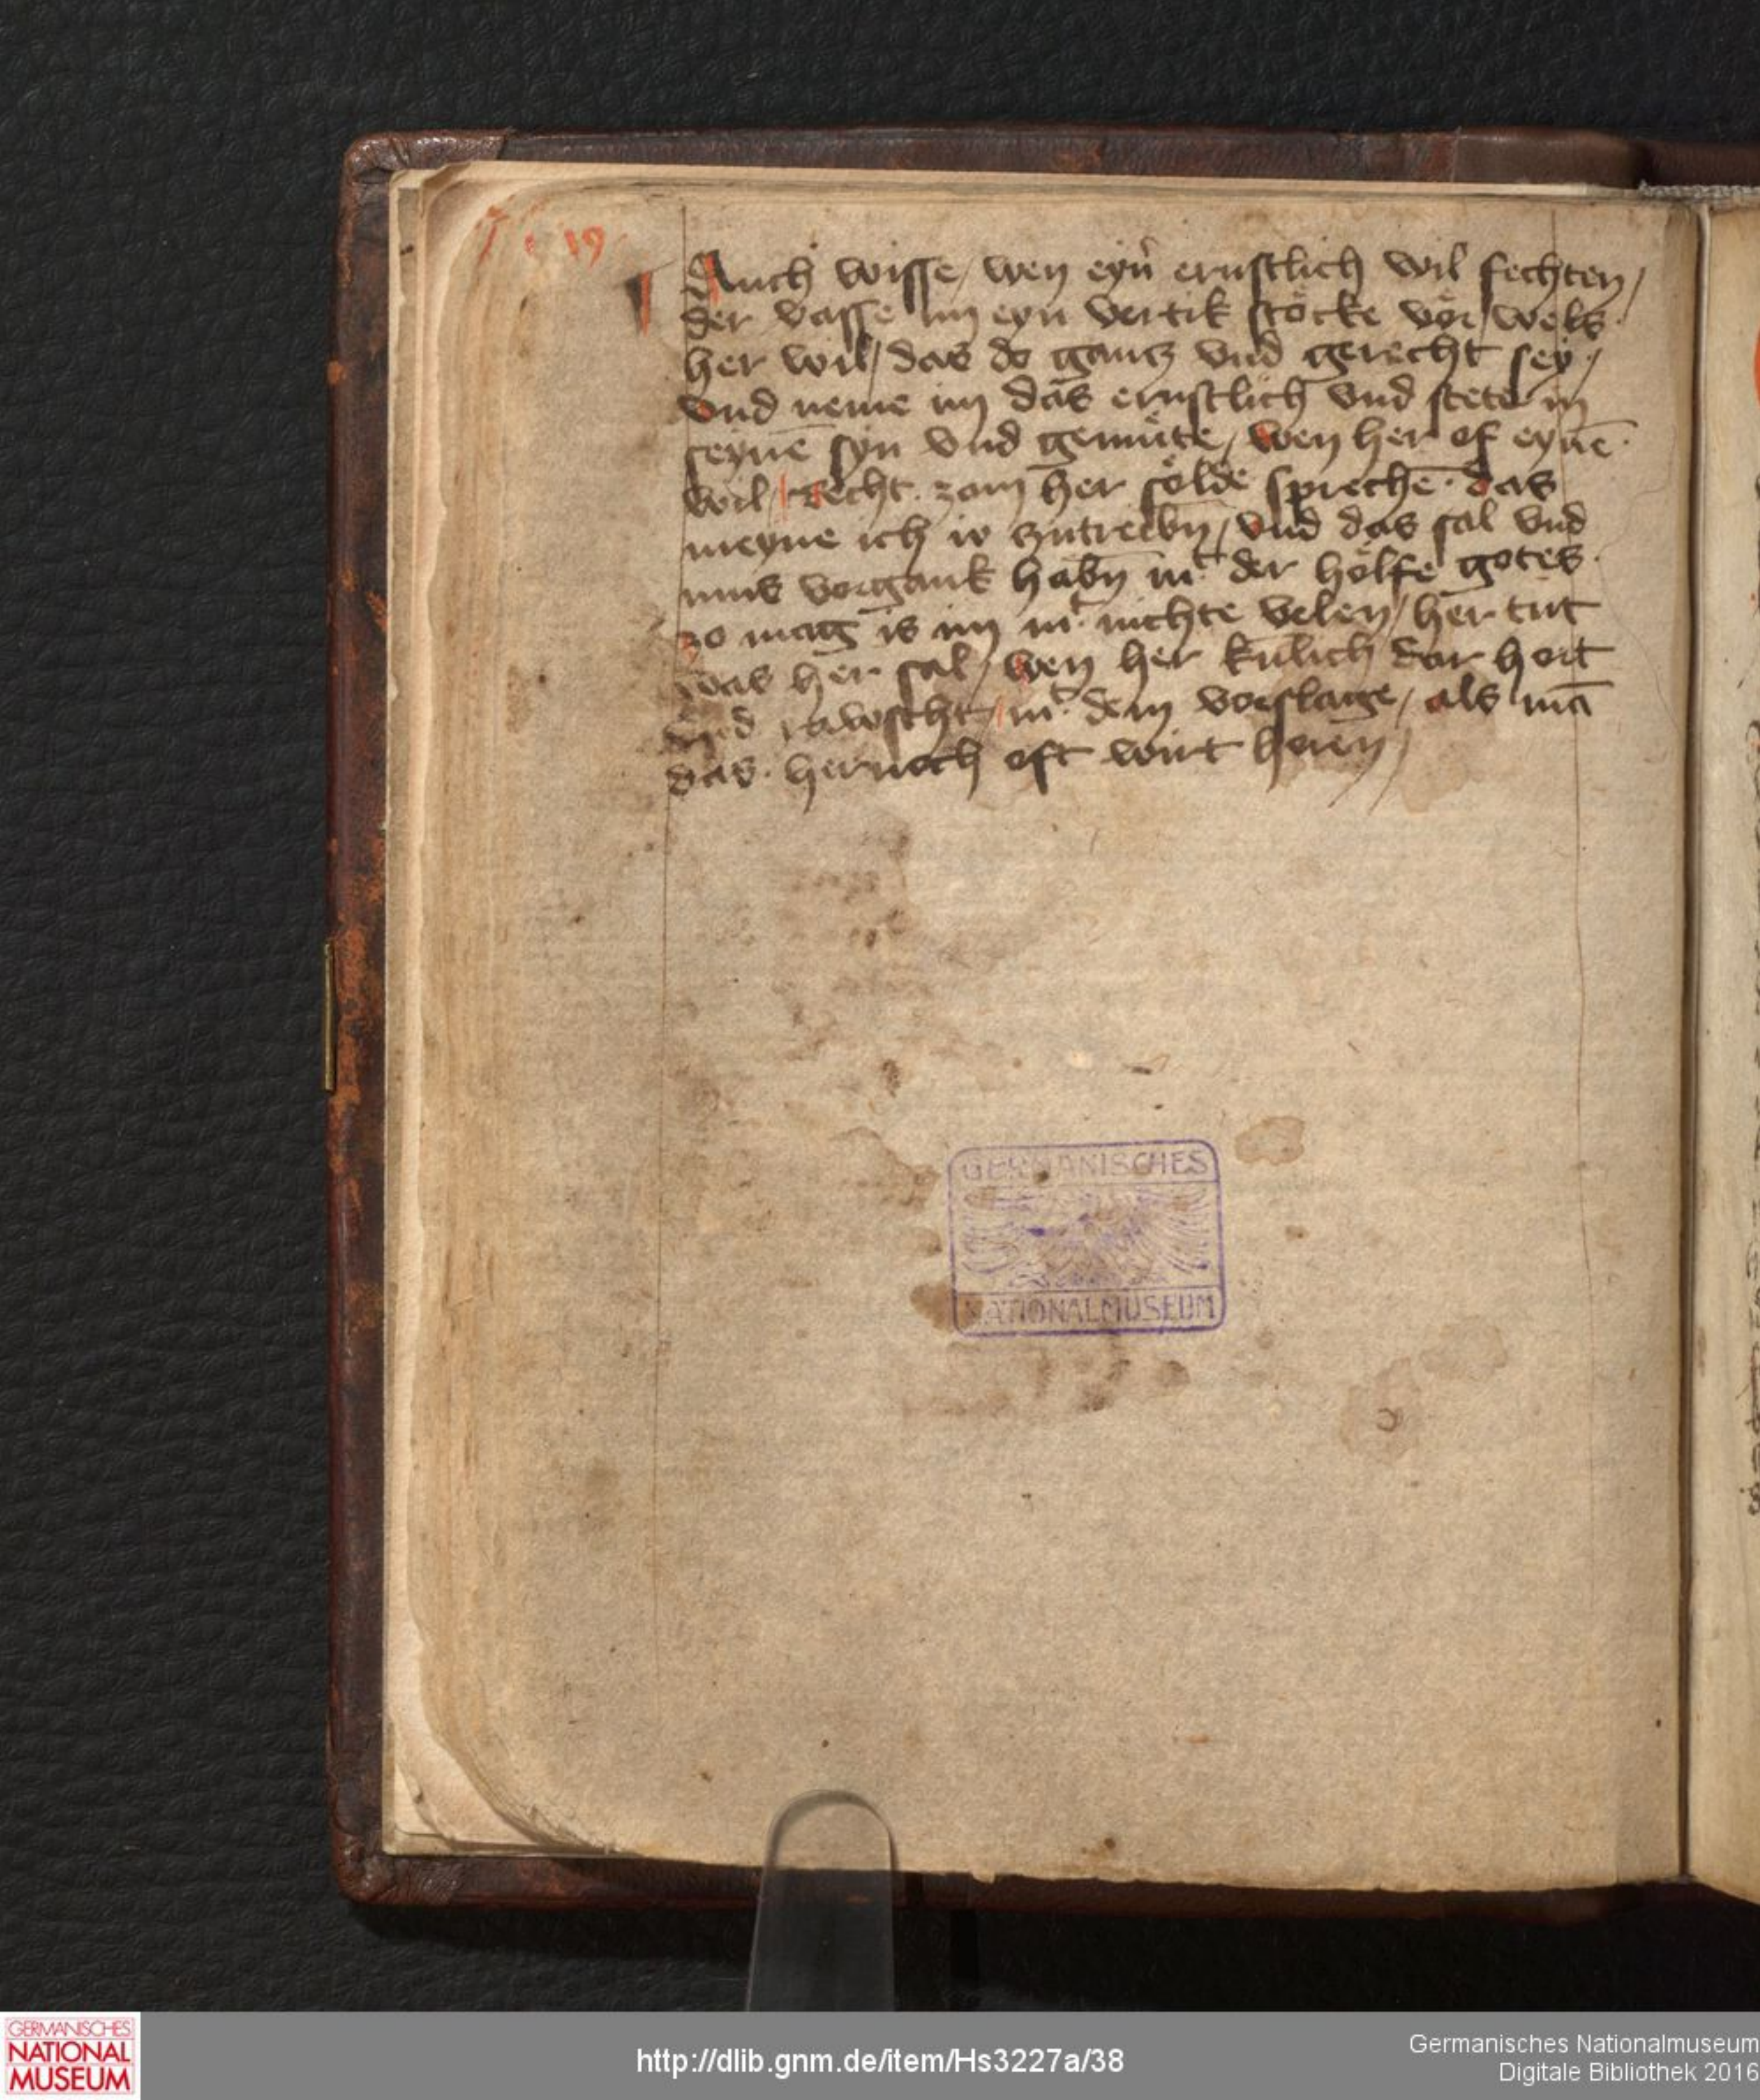 19
Auch wisse / wen eyn° ernstlich wil fechten /
der vasse im eyn vertik stöcke vör / wels
her wil / das do gantz vnd gerecht sey /
vnd neme im das ernstlich vnd stete in
seynē syn vnd gemüte / wen her of eynē
wil / Recht zam her sölde sprechē · das
meyne ich io zutreibn̄ / vnd das sal vnd
mus vorgank habn̄ mt der hölfe gotes
zo mag is im mt nichte velen / her tut
was her sal / wen her künlich dar hort
vnd rawscht / mt dem vorslage / als mā
das hernoch oft wirt horen /
GERMANISCHES
NATIONALMUSEUM
GERMANISCHES
NATIONAL
MUSEUM
http://dlib.gnm.de/item/Hs3227a/38
Germanisches Nationalmuseum
Digitale Bibliothek 2016